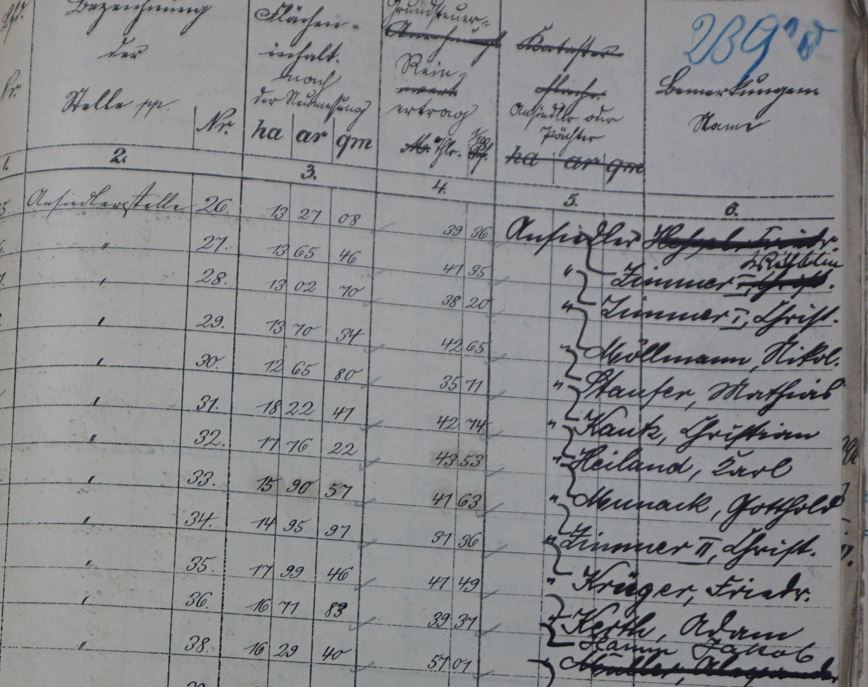 239
Bezeichnung der Stelle pp.
Nr.
Flächen-
inhalt
nach
der Neumessung
ha ar qm
Grundsteuer-
Rein-
ertrag
Thlr.
Kataster
Fläche
Ansiedler oder
Pächter
ha ar qm
Bemerkungen
Name
1. 2. 3. 4. 5. 6.
Ansiedlerstelle 26. 13 27 08 39 36 Ansiedler
" 27. 13 65 46 41 95 " Zimmer Wilhelm
" 28. 13 02 70 38 20 " Zimmer I, Christ.
" 29. 13 70 54 42 65 " Möllmann, Nikol.
" 30. 12 65 80 35 71 " Staufer, Mathias
" 31. 18 22 41 42 74 " Kautz, Christian
" 32. 17 76 22 43 53 " Heiland, Karl
" 33. 15 90 57 41 63 " Munack, Gotthold
" 34. 14 95 97 31 36 " Zimmer II, Christ.
" 35. 17 99 46 41 49 " Krüger, Friedr.
" 36. 16 71 83 39 31 Kerth, Adam
" 38. 16 29 40 57 01 Jakob